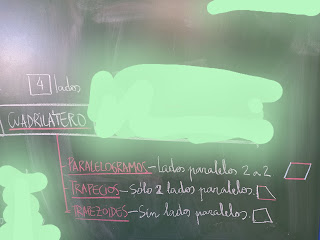 4 lados
CUADRILATERO
PARALELOGRAMOS - Lados paralelos 2 a 2
TRAPECIOS - Sólo 2 lados paralelos.
TRAPEZOIDES - Sin lados paralelos.